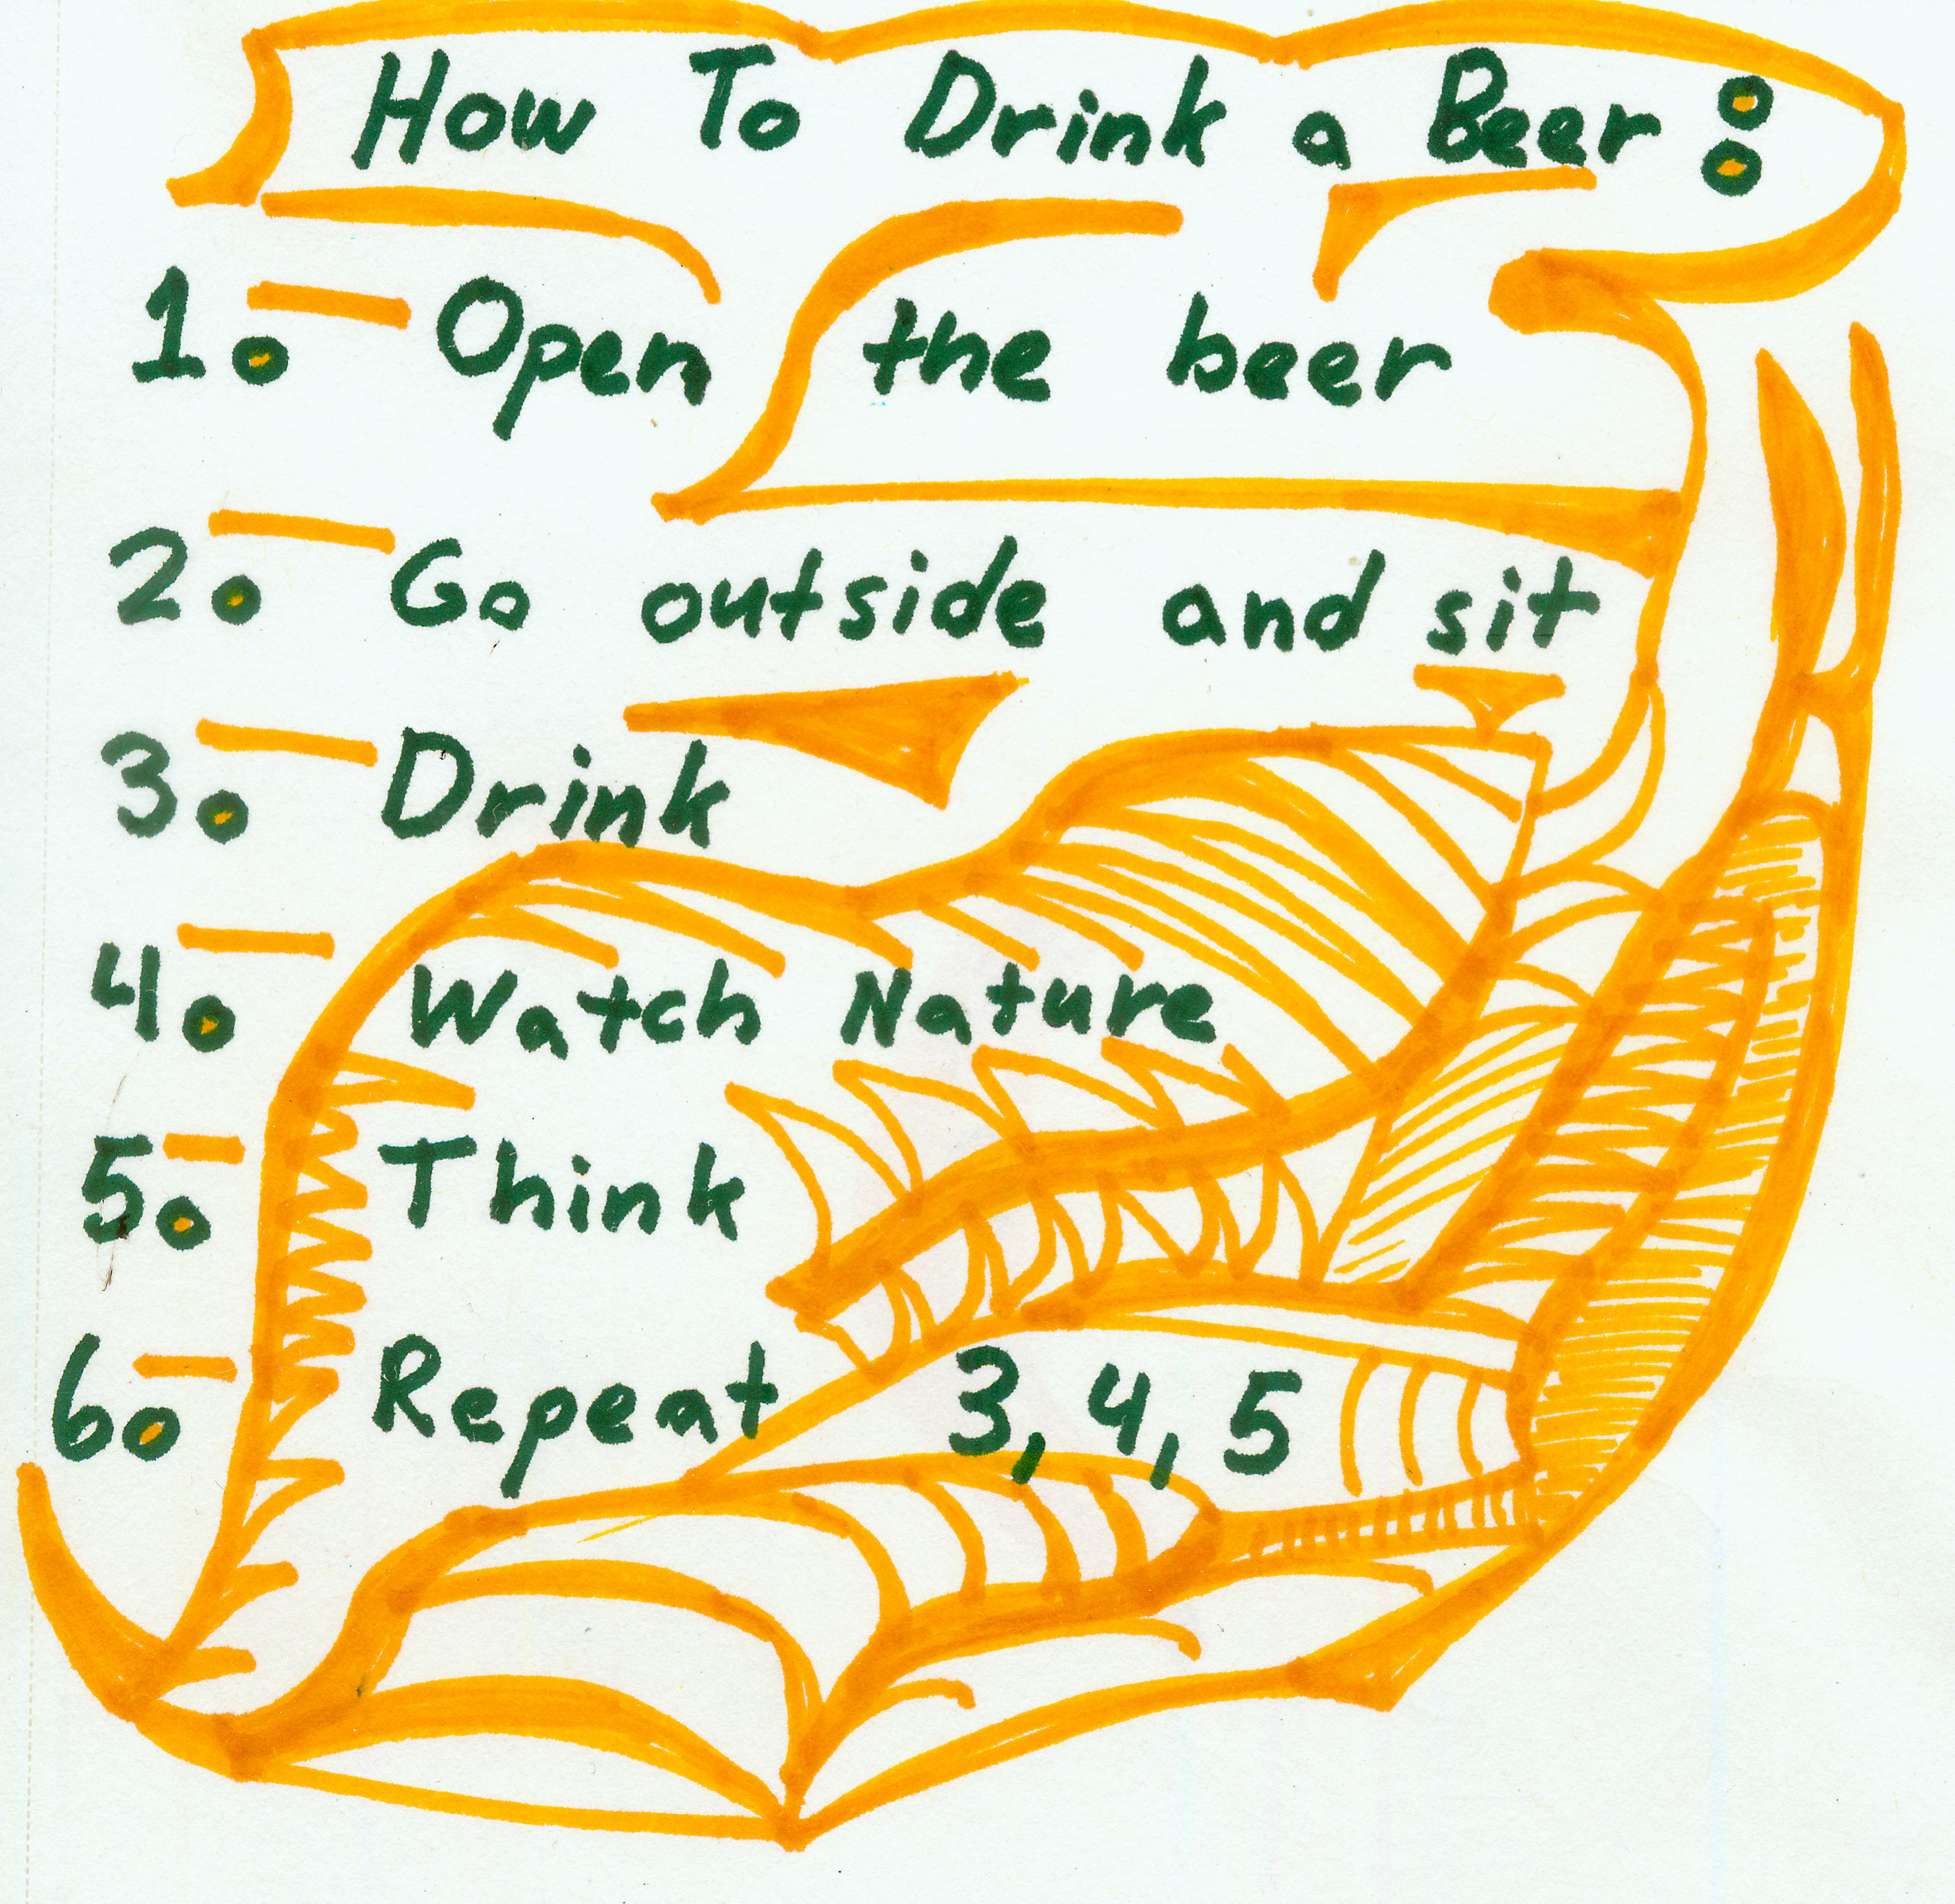 How To Drink a Beer:
1. Open the beer
2. Go outside and sit
3. Drink
4. Watch Nature
5. Think
6. Repeat 3, 4, 5